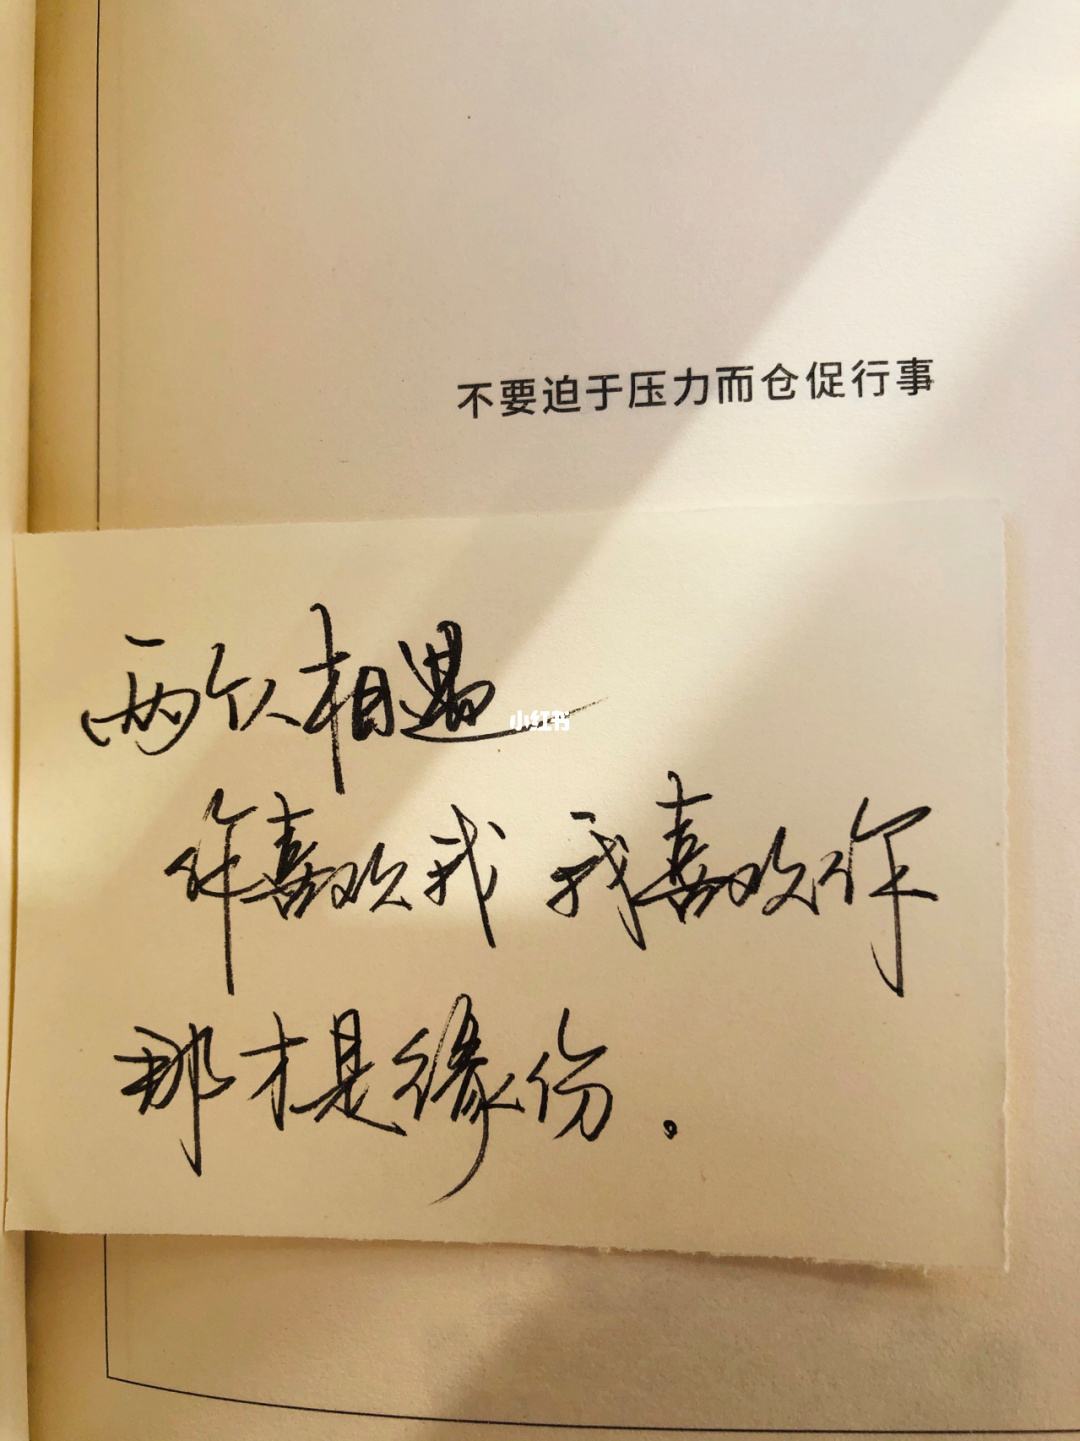 不要迫于压力而仓促行事
两个人相遇
小红书
你喜欢我 我喜欢你
那才是缘份。